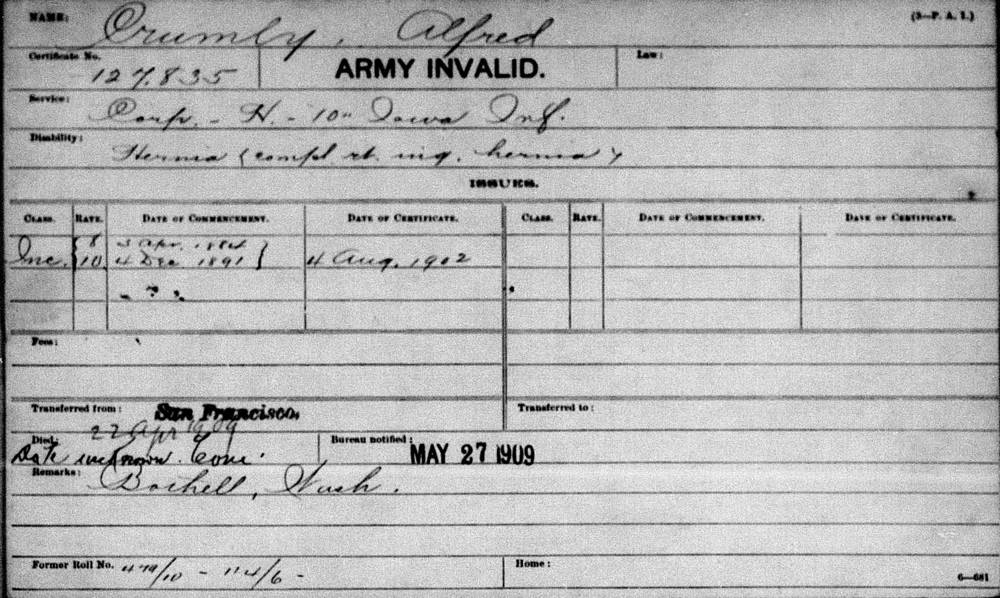 NAME: Crumby, Alfred
(3—P. A. I.)
Certificate No. 127,835
ARMY INVALID.
Law:
Service: Corp. - H. - 10" Iowa Inf.
Disability: Hernia (compl rt. ing. hernia)
ISSUES.
CLASS. RATE. DATE OF COMMENCEMENT. DATE OF CERTIFICATE. CLASS. RATE. DATE OF COMMENCEMENT. DATE OF CERTIFICATE.
Inc. { 8 3 Apr. 1884 }
10 4 Dec 1891 4 Aug. 1902
Fees:
Transferred from: San Francisco.
Transferred to:
Died: 22 Apr 1909
Date unknown.
Bureau notified: MAY 27 1909
Remarks: Bothell, Wash.
Former Roll No.
Home:
6—681